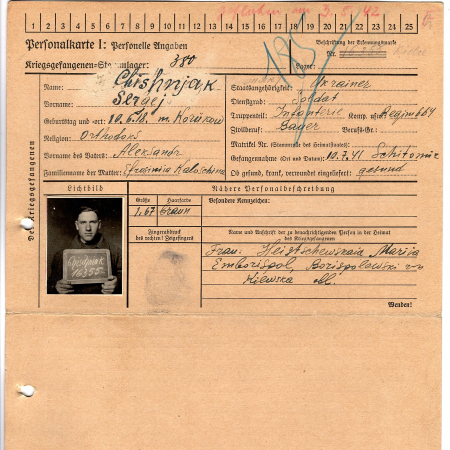 gestorben am 3.5.42
1 2 3 4 5 6 7 8 9 10 11 12 13 14 15 16 17 18 19 20 21 22 23 24 25
Personalkarte I: Personelle Angaben
Beschriftung der Erkennungsmarke
Nr.
Kriegsgefangenen-Stammlager: 380
Lager:
Des Kriegsgefangenen
Name: Chishnjak
Vorname: Sergej
Geburtstag und -ort:
Religion: Orthodox
Vorname des Vaters: Aleksandr
Familienname der Mutter:
Staatsangehörigkeit: Ukrainer
Dienstgrad: Soldat
Truppenteil: Infanterie Komp. usw.: Regim 664
Zivilberuf: Berufs-Gr.:
Matrikel Nr. (Stammrolle des Heimatstaates):
Gefangennahme (Ort und Datum): 10.7.41 Schitomir
Ob gesund, krank, verwundet eingeliefert: gesund
Lichtbild
Nähere Personalbeschreibung
Größe
Haarfarbe
1.67
braun
Besondere Kennzeichen:
Fingerabdruck
des rechten! Zeigefingers
Name und Anschrift der zu benachrichtigenden Person in der Heimat
des Kriegsgefangenen
Frau. Marija
Borispolowski
Kiewska
Wenden!
Chishnjak
16355